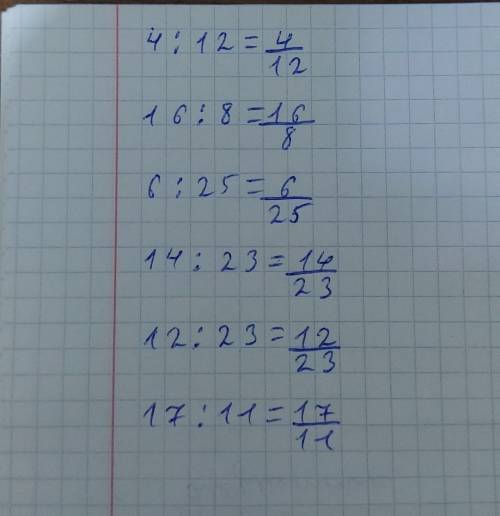 4 : 12 = 4/12
16 : 8 = 16/8
6 : 25 = 6/25
14 : 23 = 14/23
12 : 23 = 12/23
17 : 11 = 17/11